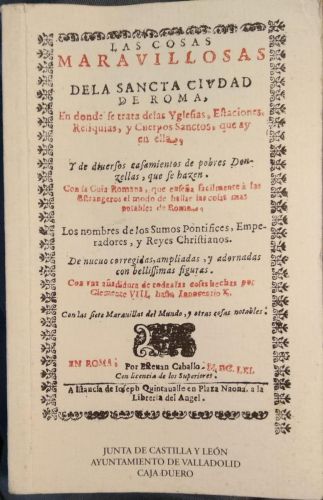 LAS COSAS
MARAVILLOSAS
DELA SANCTA CIVDAD
DE ROMA,
En donde se trata delas Yglesias, Estaciones,
Reliquias, y Cuerpos Sanctos, que ay
en ella.
Y de diuersos casamientos de pobres Don-
zellas, que se hazen.
Con la Guia Romana, que enseña facilmente à los
Estrangeros el modo de hallar las cosas mas
notables de Roma.
Los nombres de los Sumos Pontifices, Empe-
radores, y Reyes Christianos.
De nueuo corregidas, ampliadas, y adornadas
con bellissimas figuras.
Con vna añadidura de todas las cosas hechas por
Clemente VIII, hasta Innocentio X.
Con las siete Marauillas del Mundo, y otras cosas notables.
EN ROMA: Por Esteuan Caballo. M. DC. LI.
Con licencia de los Superiores.
A istancia de Ioseph Quintaualle en Plaza Naona. a la
Libreria del Angel.
JUNTA DE CASTILLA Y LEÓN
AYUNTAMIENTO DE VALLADOLID
CAJA DUERO